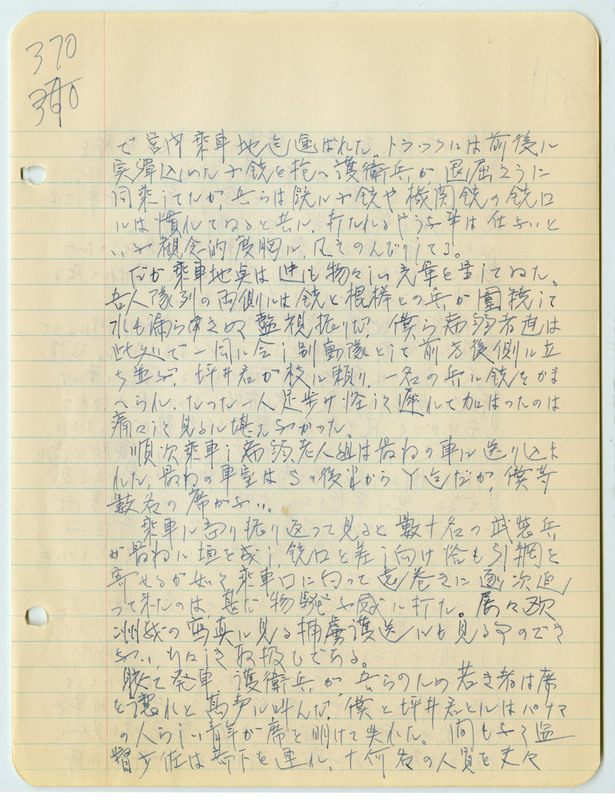 370
340
で営内乗車地迄運ばれた。トラックには前後に
実弾込めた銃を抱へ護衛兵が退屈さうに
同乗してたが、吾らは既に銃や機関銃の銃口
には慣れてゐると共に、打たれるやうな事は仕ないと
いふ観念的度胸に、凡そのんびりしてる。
だが乗車地点は迚も物々しい光景を呈してゐた。
各人隊列の両側には銃と棍棒との兵が囲繞して
水も漏らすまじき監視振りだ。僕ら病弱者達は
此処で一同に会し別動隊として前方後側に立
ち並ぶ。坪井君が杖に頼り、一名の兵に銃をかま
へられ、たった一人足歩も怪しく遅れて加はったのは
痛々しく見るに堪えなかった。
順次乗車し病弱老人組は最后の車に送り込ま
れた、最后の車室はSの後半からY迄だが、僕等
数名の席がない。
乗車に当り振り返って見ると数十名の武装兵
が最后に垣を成し、銃口を差し向け恰も引網を
寄せるが如く乗車口に向って遠巻きに逐次迫
って来たのは甚だ物騒な感に打た。屡々欧
洲戦の写真に見る捕虜護送にも見る事のでき
ない、
取扱ひである。
聴て発車、護衛兵が、吾らのため若き者は席
を譲れと罵声に叫んだ。僕と坪井君とにはパナマ
の人らしい青年が席を明けて失れた。間もなく監
督少佐は部下を連れ、十何名の人質を丈々